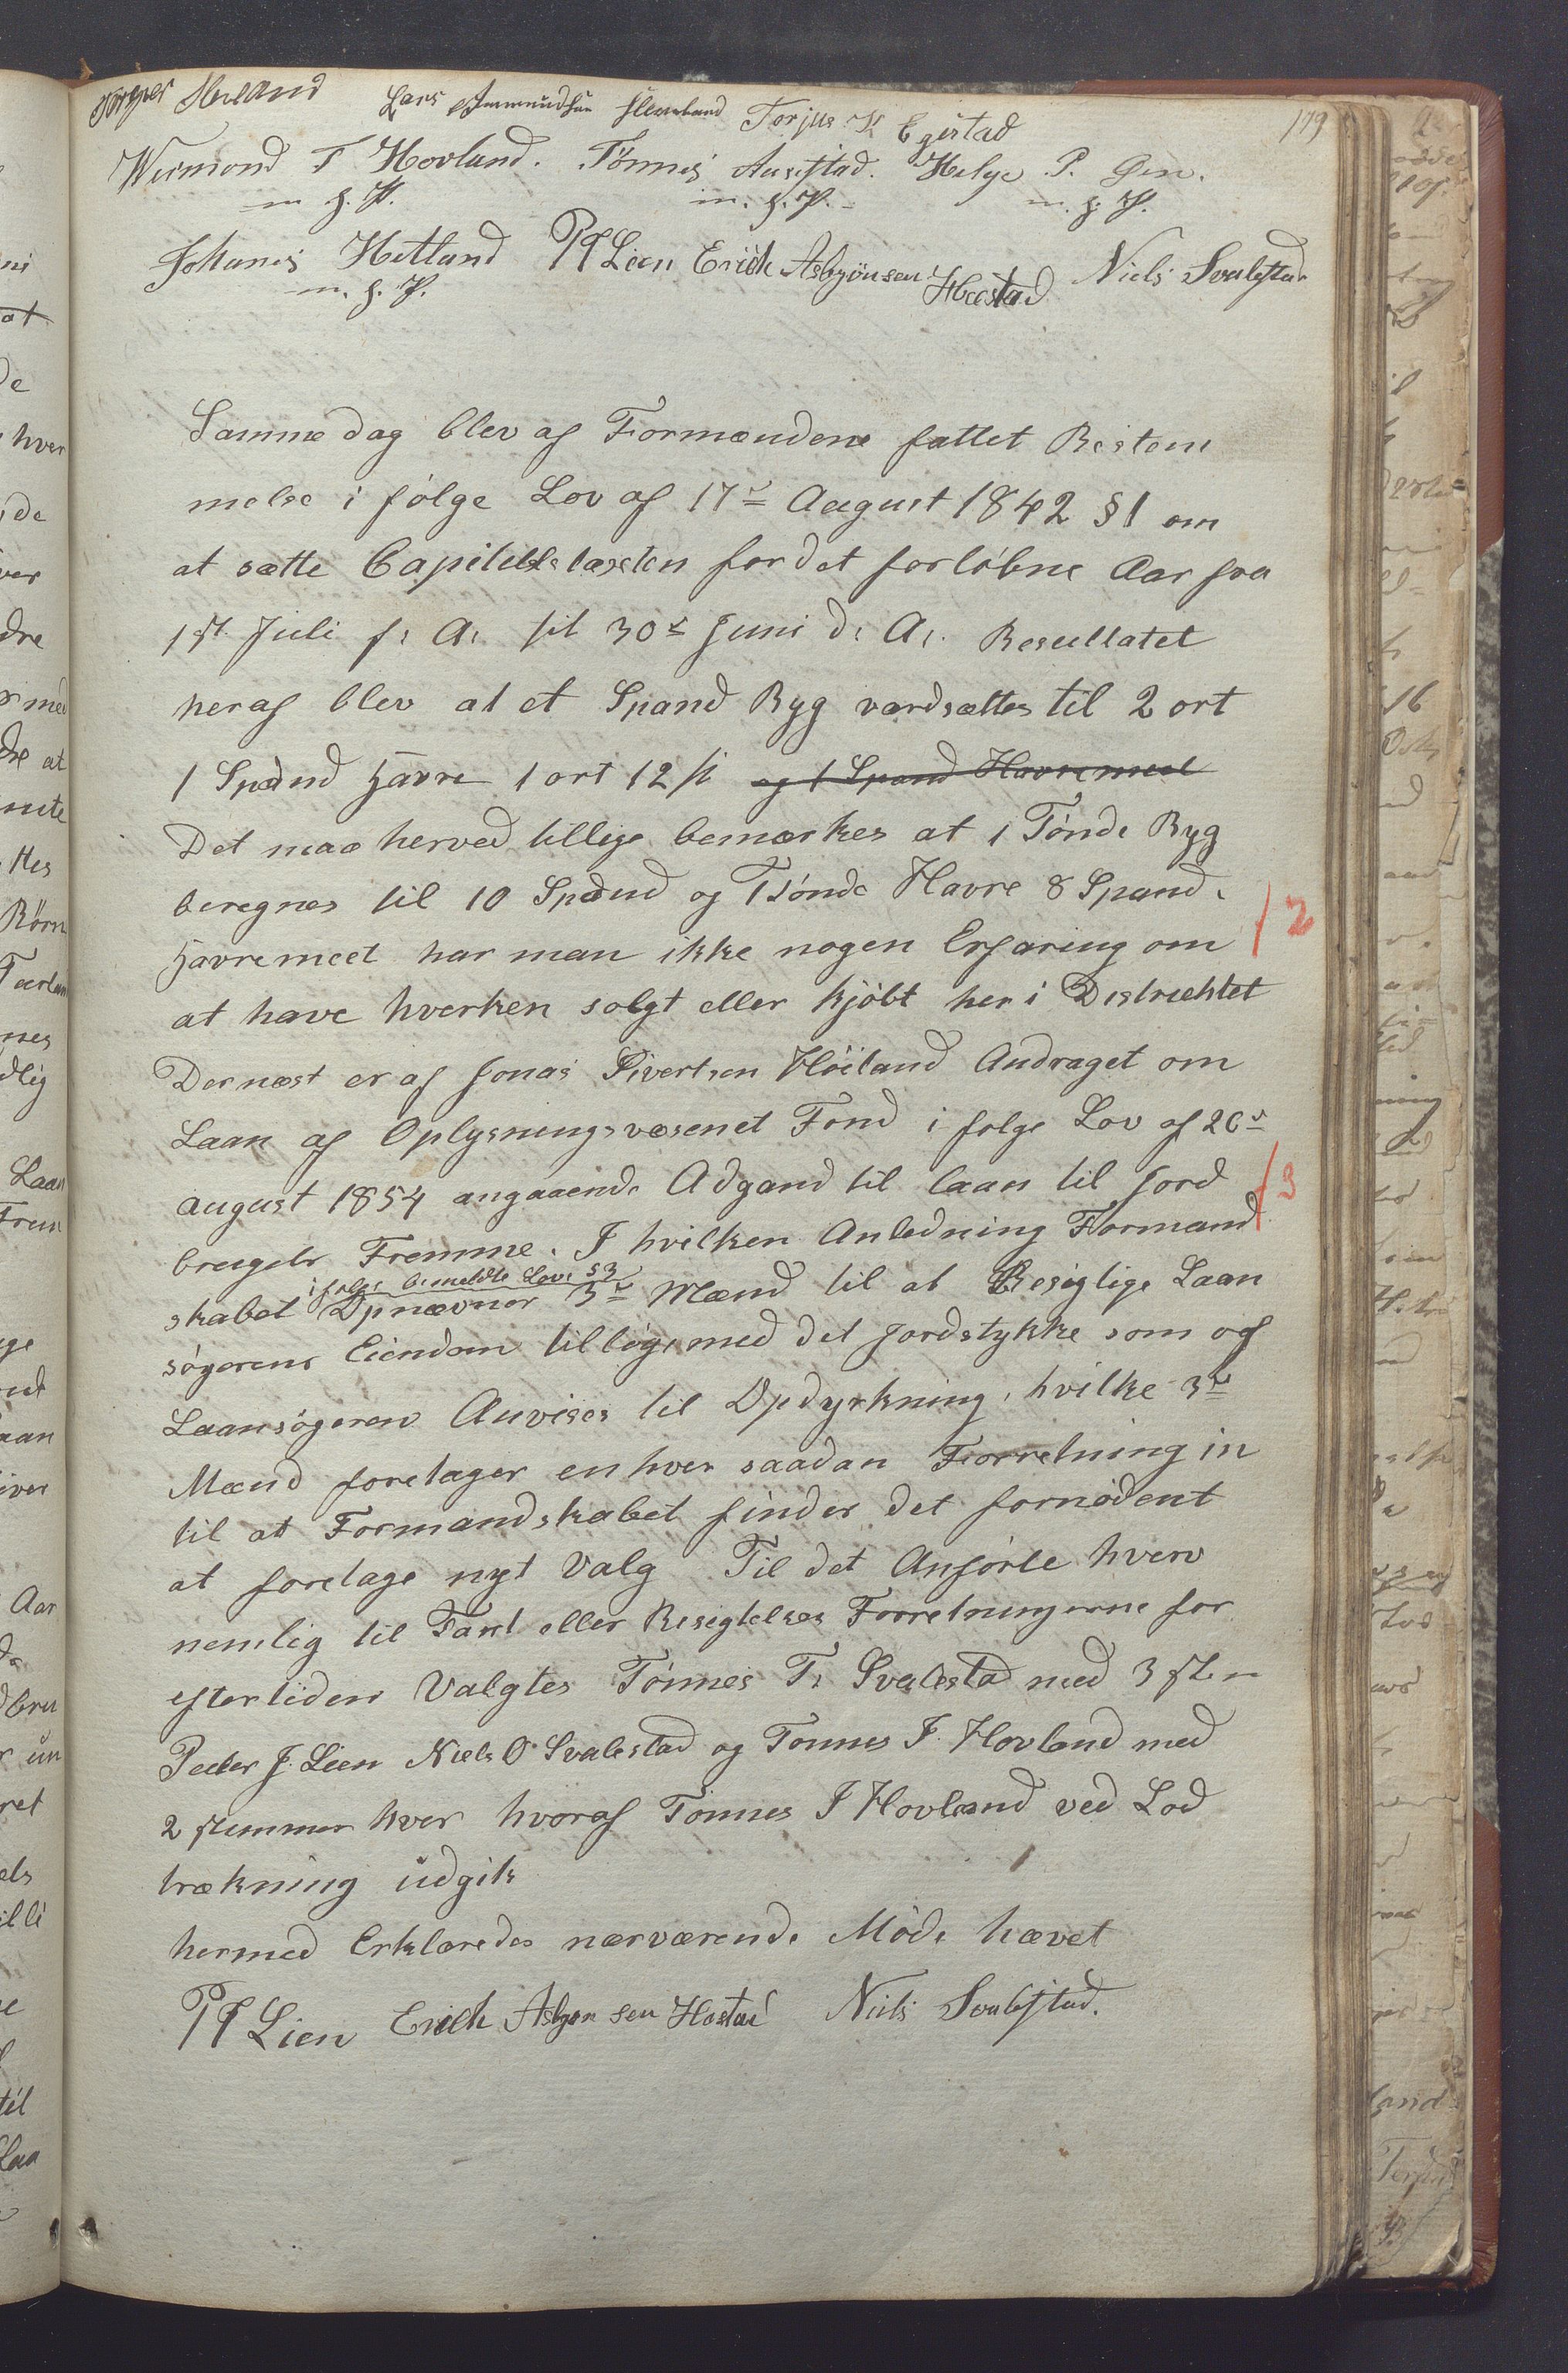 179
Hovland Lars Ammundsen Torjus K Egistad
Wermond T Hovland. Tönnes Auestad. Helge P. Øen.
m. f. P. m. f. P. m. f. P.
Johanes Hetland PJ Lien Erick Asbjönsen Hæstad Niels Svalestad
m. f. P.
Samme dag blev af Formændene fattet Bestem
melse i følge Lov af 17de August 1842 § 1 om
at sætte Capitelstaxten for det forløbne Aar fra
1st Juli f: A: til 30te Juni d: A: Resultatet
heraf blev at et Spand Byg værdsættes til 2 ort
1 Spand Havre 1 ort 12 s og 1 Spand Havremeel
Det maa herved tillige bemærkes at 1 Tönde Byg
beregnes til 10 Spand og 1 Tönde Havre 8 Spand.
Havremeel har man ikke nogen Erfaring om 2
at have hverken solgt eller kjöbt her i Districktet
Dernæst er af Jonas Sivertsen Höiland Andraget om
Laan af Oplysningsvæsenet Fond i følge Lov af 26de
august 1854 angaaende Adgand til laan til Jord 3
brugets Fremme. I hvilken Anledning Formand
i følge bemeldte Lovs § 3
skabet Opnævner 3de Mænd til at Besigtige Laan
søgerens Eiendom tillige med det Jordstykke som af
Laansøgeren Anvises til Opdyrkning, hvilke 3de
Mænd foretager en hver saadan Forretning in
til at Formandskabet finder det fornödent
at foretage nyt Valg Til det Anførte hverv
nemlig til Taxt eller Besigtelses Forretningerne for
eftertiden Valgtes Tönnes T. Svalestad med 3 st.r
Peder J. Lien Niels O Svalestad og Tönnes I. Hovland med
2 stemmer hver hvoraf Tönnes I Hovland ved Lod
trækning udgik
hermed Erklæredes nærværende Möde hævet
PJ Lien Erick Asbjön sen Hæstad Niels Svalestad.